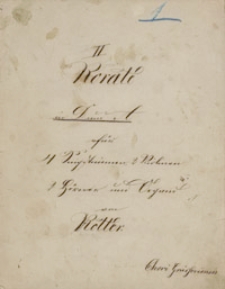 1
II
Rorate
in D und A
für
4 Singstimmen 2 Violinen
2 Hörner und Orgel
von
Rotter.
Chori